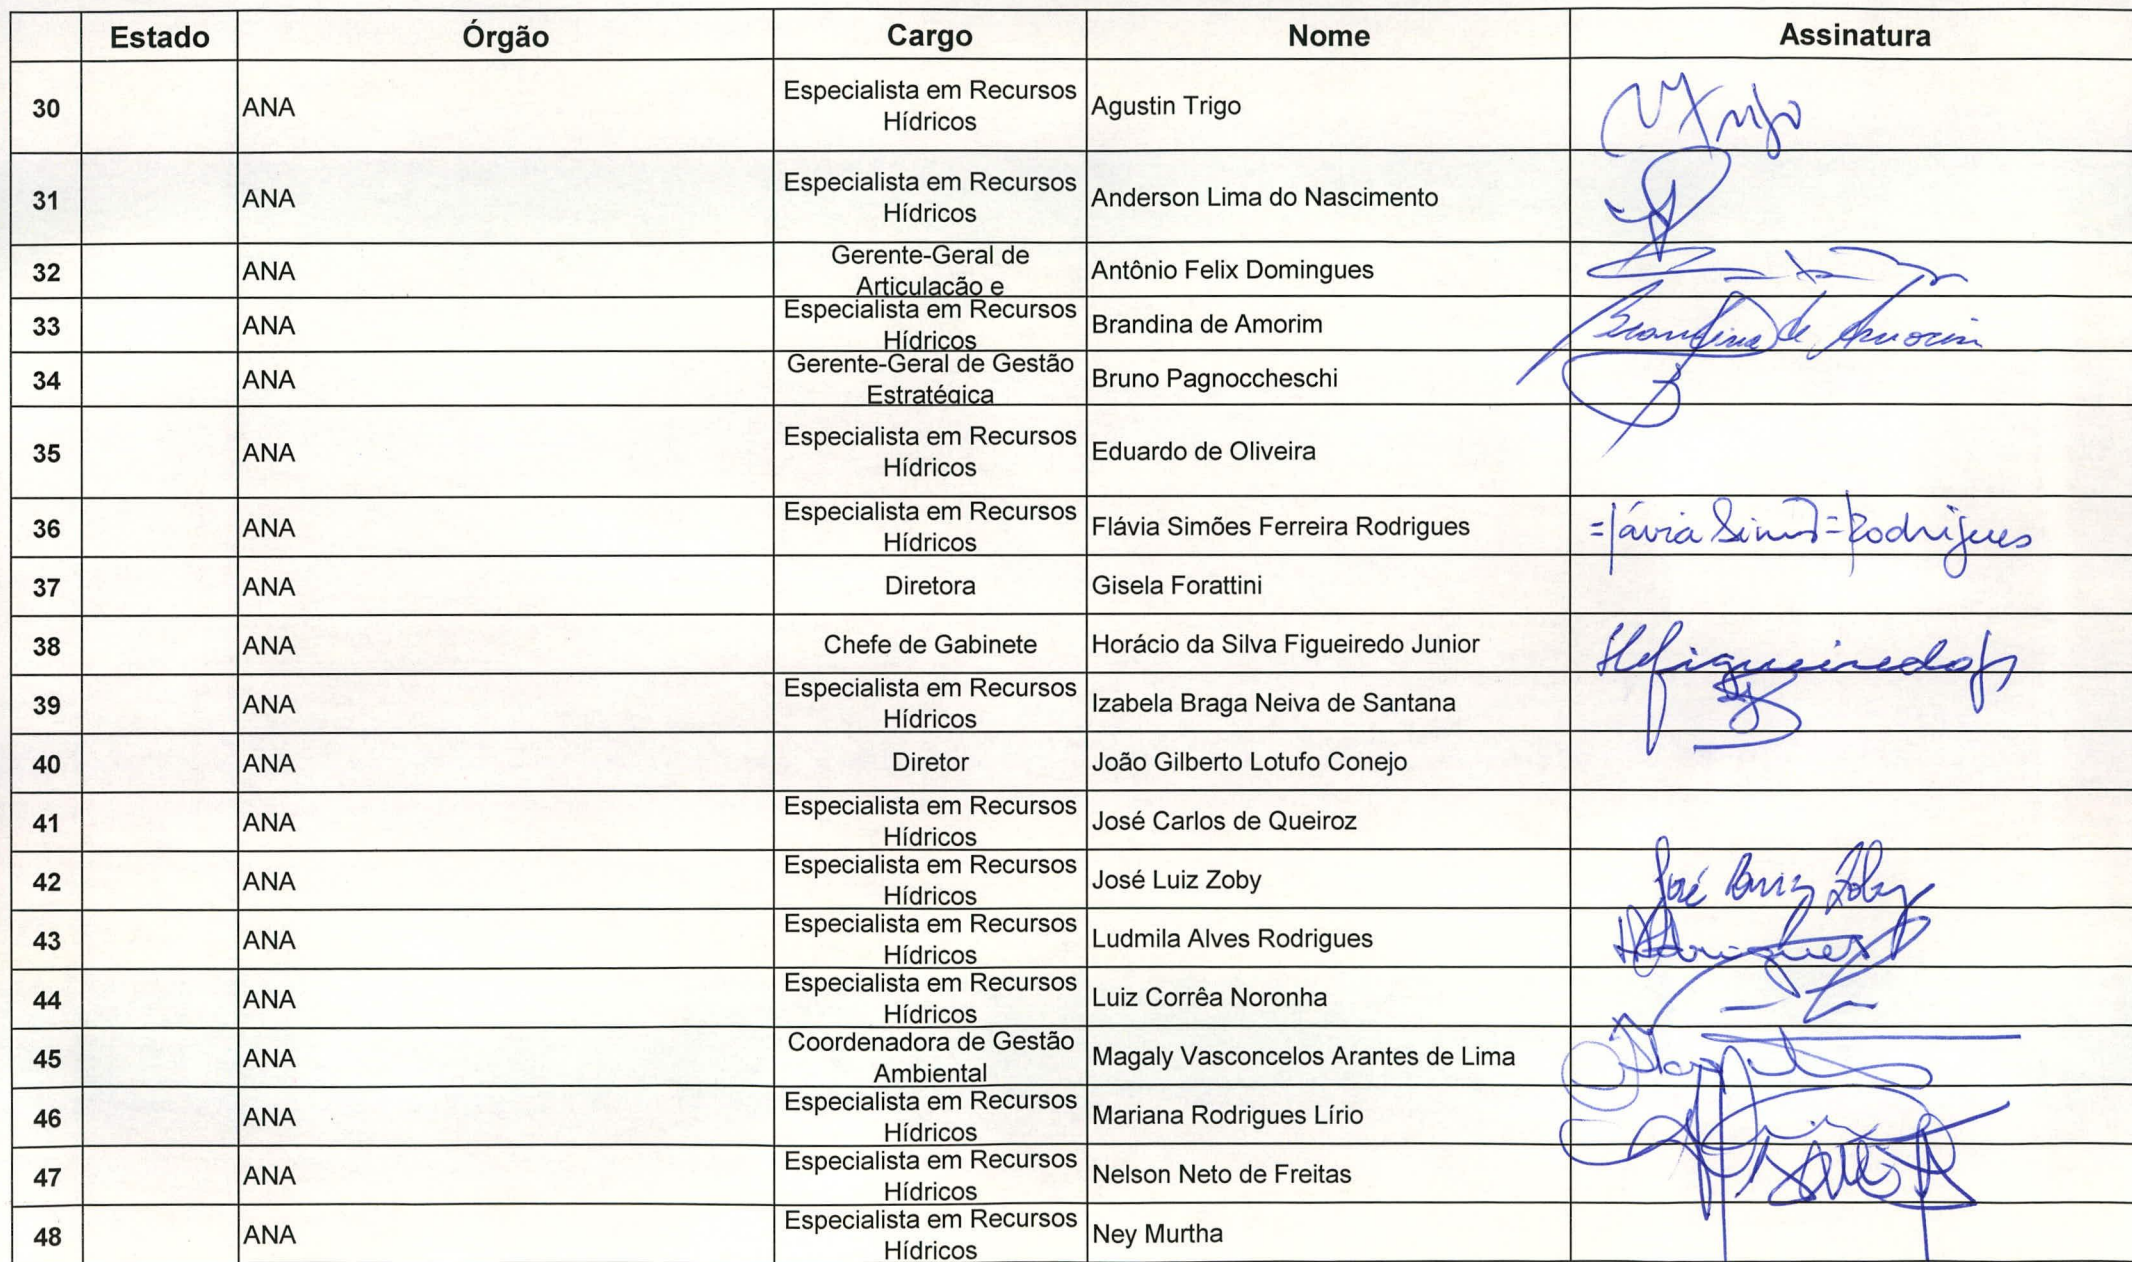 Estado Órgão Cargo Nome Assinatura
30 ANA Especialista em Recursos Hídricos Agustin Trigo
31 ANA Especialista em Recursos Hídricos Anderson Lima do Nascimento
32 ANA Gerente-Geral de Articulação e Antônio Felix Domingues
33 ANA Especialista em Recursos Hídricos Brandina de Amorim Brandina de Amorim
34 ANA Gerente-Geral de Gestão Estratégica Bruno Pagnoccheschi
35 ANA Especialista em Recursos Hídricos Eduardo de Oliveira
36 ANA Especialista em Recursos Hídricos Flávia Simões Ferreira Rodrigues Flávia Rodrigues
37 ANA Diretora Gisela Forattini
38 ANA Chefe de Gabinete Horácio da Silva Figueiredo Junior HFigueiredo Jr
39 ANA Especialista em Recursos Hídricos Izabela Braga Neiva de Santana
40 ANA Diretor João Gilberto Lotufo Conejo
41 ANA Especialista em Recursos Hídricos José Carlos de Queiroz
42 ANA Especialista em Recursos Hídricos José Luiz Zoby José Luiz Zoby
43 ANA Especialista em Recursos Hídricos Ludmila Alves Rodrigues
44 ANA Especialista em Recursos Hídricos Luiz Corrêa Noronha
45 ANA Coordenadora de Gestão Ambiental Magaly Vasconcelos Arantes de Lima
46 ANA Especialista em Recursos Hídricos Mariana Rodrigues Lírio
47 ANA Especialista em Recursos Hídricos Nelson Neto de Freitas
48 ANA Especialista em Recursos Hídricos Ney Murtha